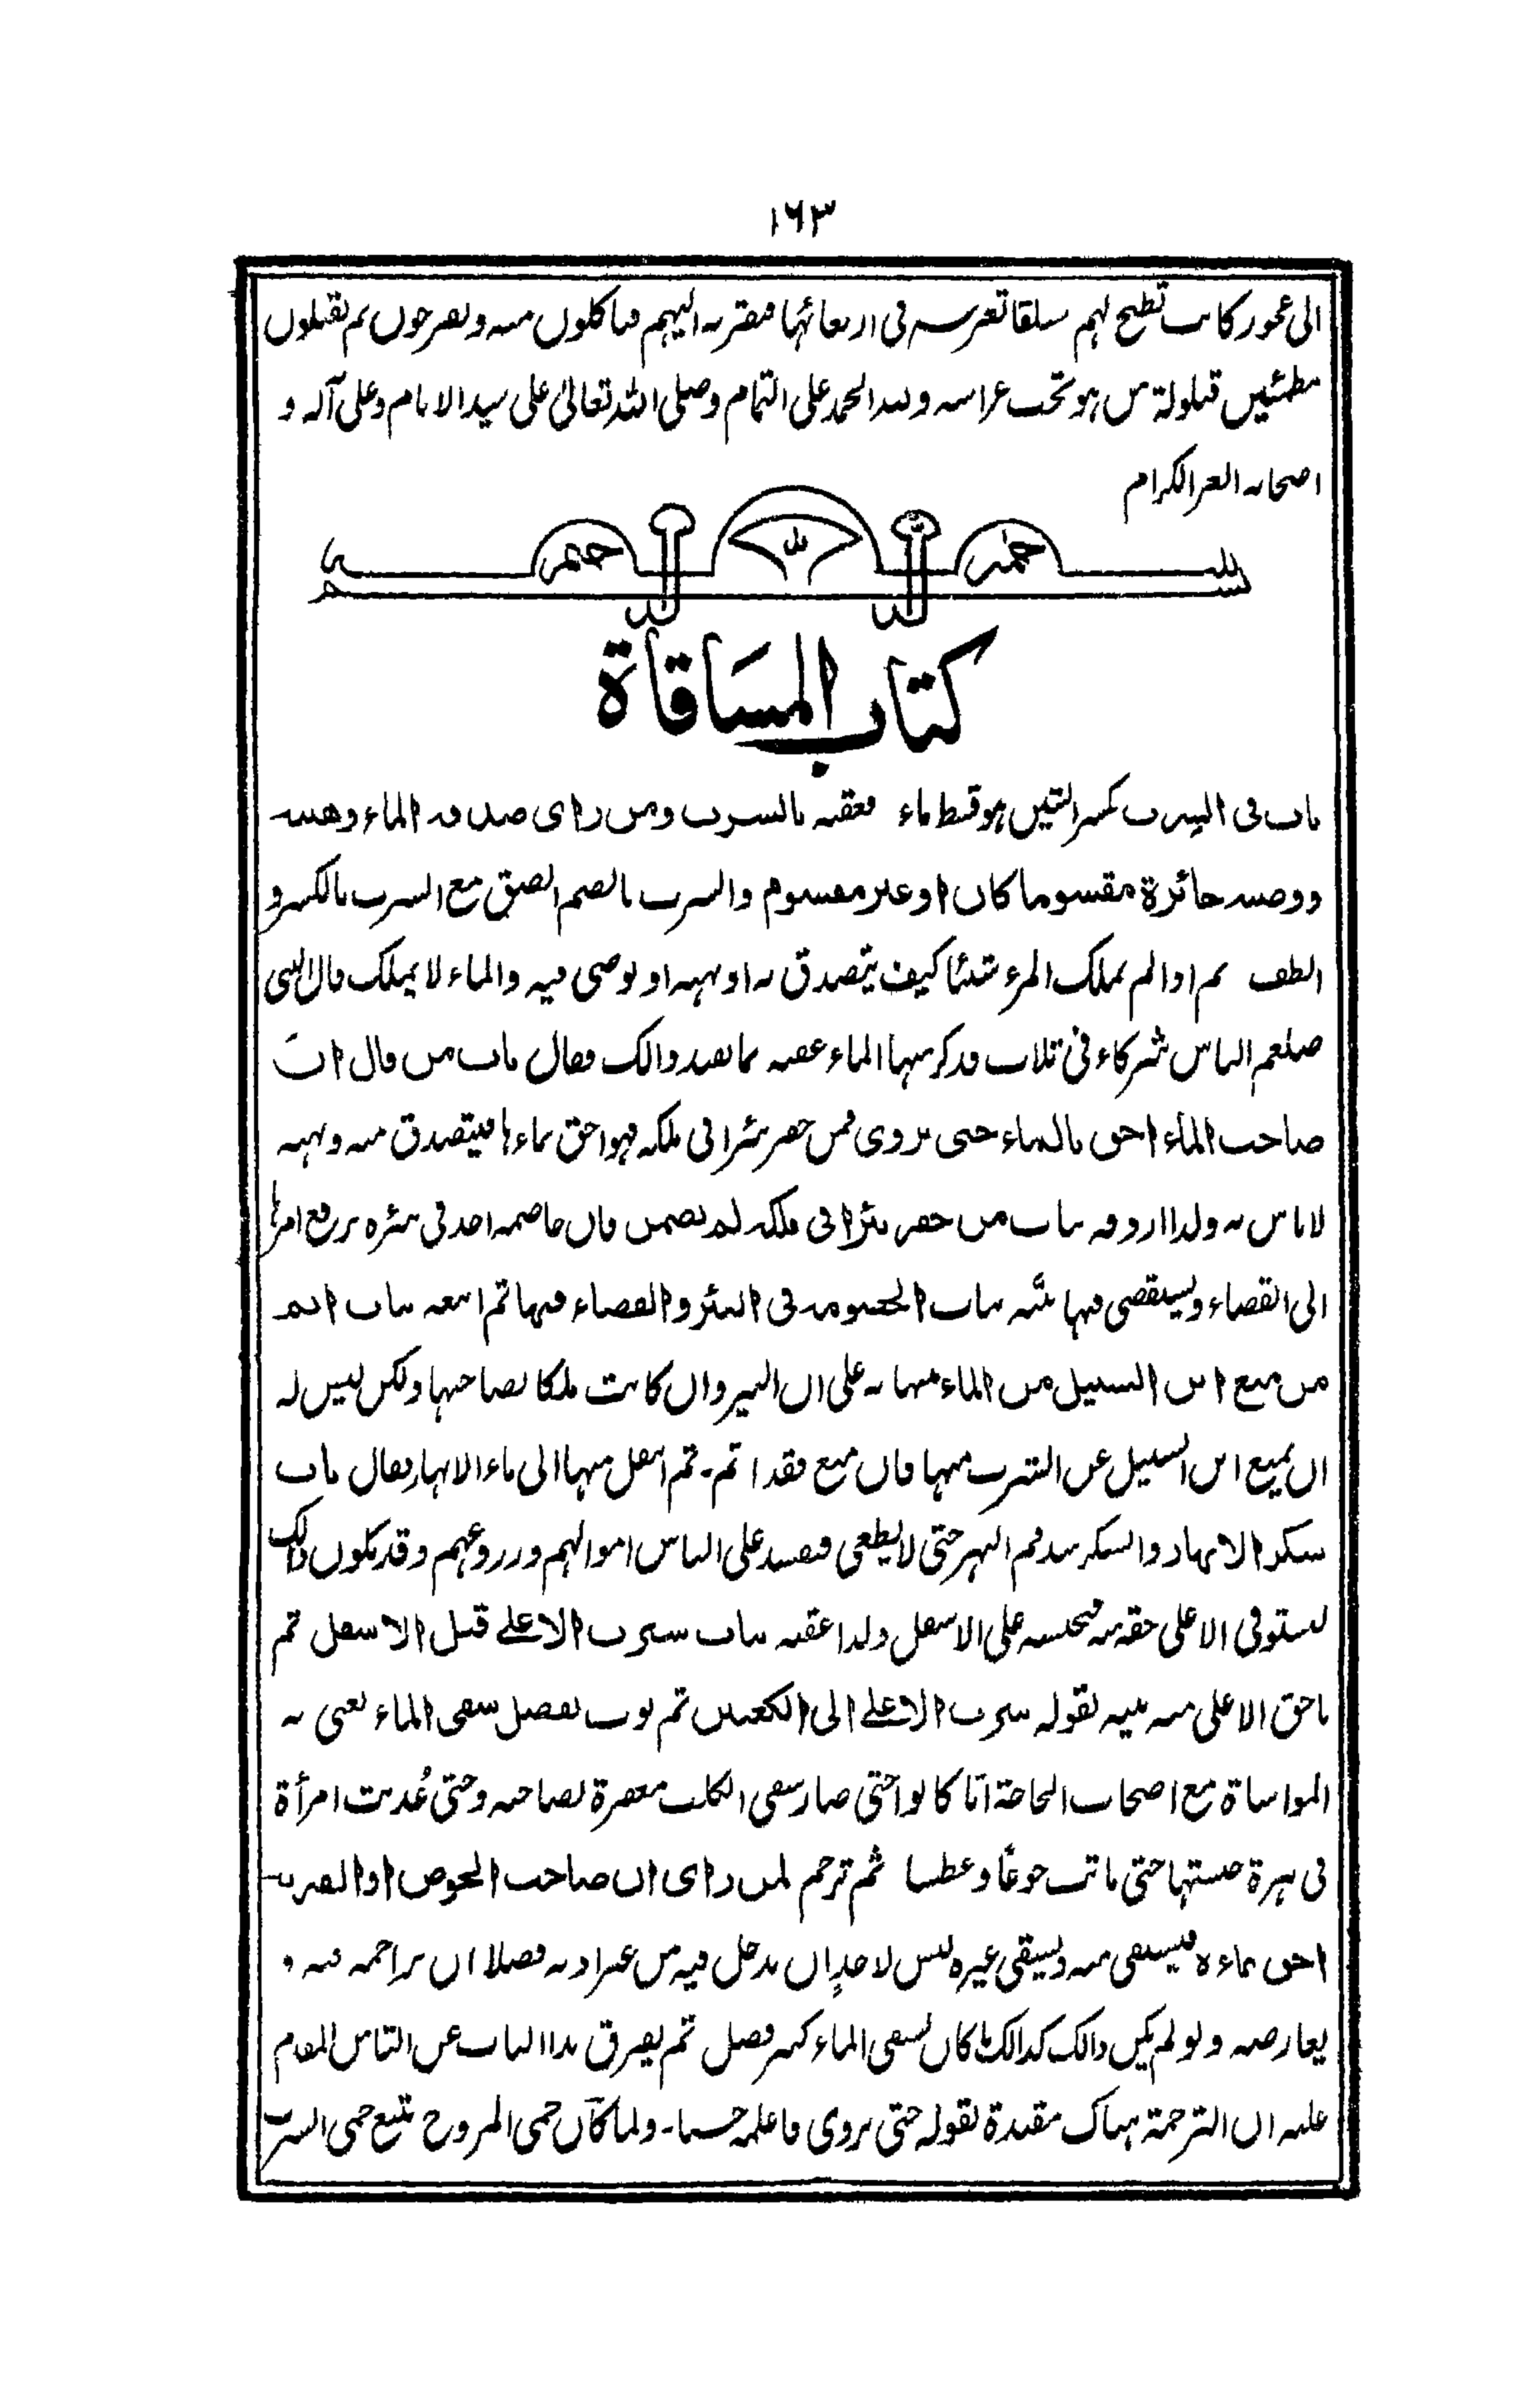 ۱۶۳
الی عجوز کانت تطبخ لهم سلقا تغرسه فی اربعائها فتقربه الیهم فیاکلون منه ویفرحون ثم یقیلون
مطمئنین قیلولة من هو تحت عراسه ولله الحمد علی التمام وصلی الله تعالیٰ علی سید الانام وعلی آله و
اصحابه الغر الکرام
بسم الله الرحمن الرحیم
کتاب المساقاة
باب فی الشرب بکسر الشین هو قسط ماء فعقبه بالشرب ومن رای صدقة الماء وهبته
ووصیته جائزة مقسوما کان او غیر مقسوم والشرب بالضم الصق مع الشرب بالکسر و
الطف ثم اذا لم یملک المرء شیئا کیف یتصدق به او یهبه او یوصی فیه والماء لا یملک قال النبی
صلعم الناس شرکاء فی ثلاث فذکر منها الماء عقبه بما یفید ذالک فقال باب من قال ان
صاحب الماء احق بالماء حتی یروی فمن حفر بئرا فی ملکه فهو احق بماءها فیتصدق منه ویهبه
لا باس به ولذا اردفه باب من حفر بئرا فی ملکه لم یضمن فان خاصمه احد فی بئره یرفع امرها
الی القضاء ویستقضی فیها باب الخصومة فی البئر والقضاء فیها ثم اتبعه باب اثم
من منع ابن السبیل من الماء منبها به علی ان البیر وان کانت ملکا لصاحبها ولکن لیس له
ان یمنع ابن السبیل عن الشرب منها فان منع فقد اثم۔ ثم انتقل منها الی ماء الانهار فقال باب
سکر الانهار والسکر سد فم النهر حتی لا یطغی فیفسد علی الناس اموالهم وزروعهم وقد یکون ذالک
لیستوفی الاعلی حقه منه فیحبسه علی الاسفل ولذا عقبه باب شرب الاعلے قبل الاسفل ثم
ما حق الاعلی منه بینه بقوله شرب الاعلے الی الکعبین ثم بوب بفضل سقی الماء یعنی به
المواساة مع اصحاب الحاجة ایا کانوا حتی صار سقی الکلب مغفرة لصاحبه وحتی عُذبت امرأة
فی هرة حبستها حتی ماتت جوعًا وعطشا ثم ترجم لمن رای ان صاحب الحوض او القربة
احق بماءه فیستقی منه ویسقی غیره لیس لاحدٍ ان یدخل فیه من غیر اذنه فضلا ان یزاحمه فیه و
یعارضه ولو لم یکن ذالک کذالک ما کان لسقی الماء کبیر فضل ثم یفرق هذا الباب عن الباب المقدم
علیه ان الترجمة هناک مقیدة بقوله حتی یروی فاعلمه حسنا۔ ولما کان حمی المروج یتبع حمی الشرب